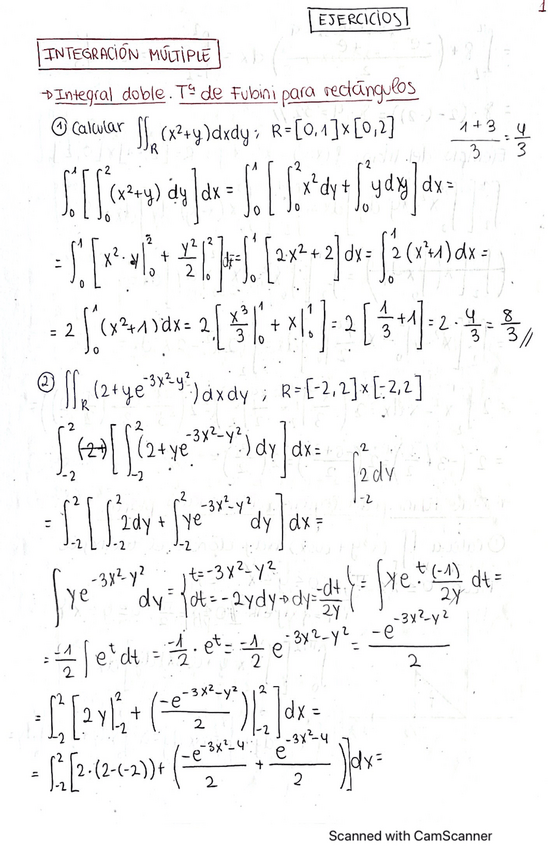 1
EJERCICIOS
INTEGRACIÓN MÚLTIPLE
→ Integral doble. Tª de Fubini para rectángulos
① Calcular ∬_R (x²+y) dxdy ; R=[0,1]×[0,2]
(1+3)/3 = 4/3
∫₀¹ [∫₀² (x²+y) dy] dx = ∫₀¹ [∫₀² x² dy + ∫₀² y dxy] dx =
= ∫₀¹ [x²·y|₀² + y²/2|₀²] dx = ∫₀¹ [2·x²+2] dx = ∫₀¹ 2(x²+1) dx =
= 2 ∫₀¹ (x²+1) dx = 2 [x³/3|₀¹ + x|₀¹] = 2 [1/3 + 1] = 2 · 4/3 = 8/3 //
② ∬_R (2+ye^(-3x²-y²)) dxdy ; R=[-2,2]×[-2,2]
∫₋₂² (2+) [∫₋₂² (2+ye^(-3x²-y²)) dy] dx =
∫₋₂² 2dy
= ∫₋₂² [∫₋₂² 2dy + ∫₋₂² ye^(-3x²-y²) dy] dx =
∫ ye^(-3x²-y²) dy = {t=-3x²-y² dt=-2ydy → dy=-dt/2y} = ∫ ye^t · (-1)/2y dt =
= -1/2 ∫ e^t dt = -1/2 · e^t = -1/2 e^(-3x²-y²) = -e^(-3x²-y²)/2
= ∫₋₂² [2y|₋₂² + (-e^(-3x²-y²)/2)|₋₂²] dx =
= ∫₋₂² [2·(2-(-2)) + (-e^(-3x²-4)/2 + e^(-3x²-4)/2)] dx =
Scanned with CamScanner